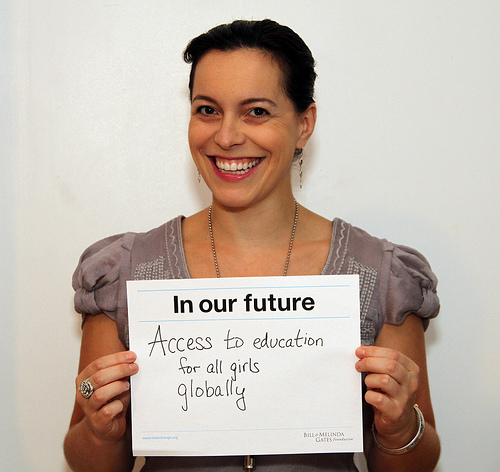 In our future
Access to education
for all girls
globally
BILL & MELINDA
GATES foundation